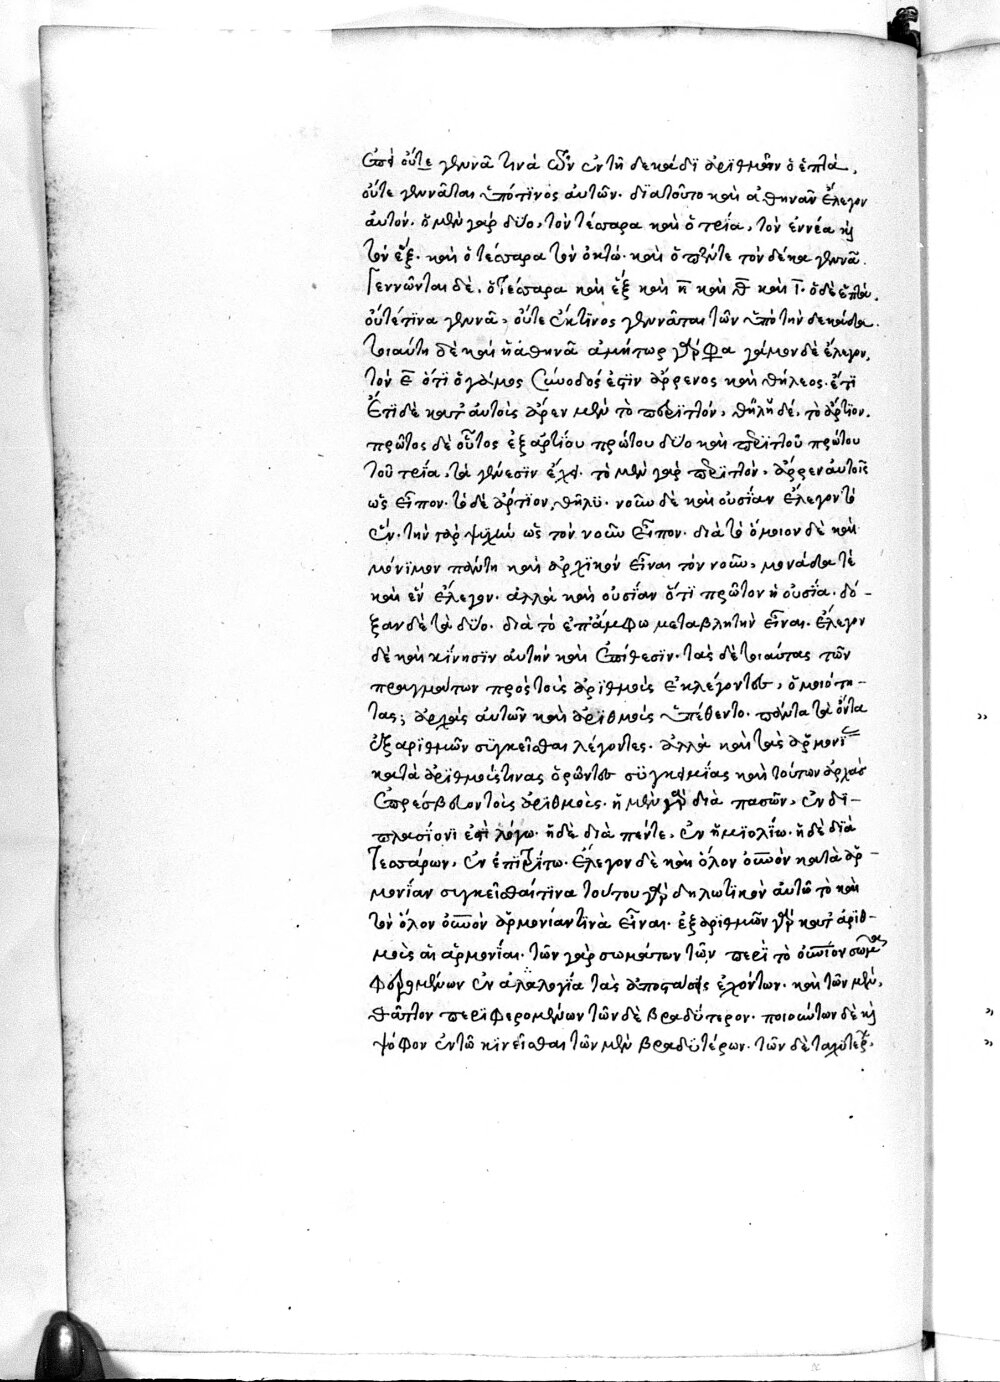 ἐπεὶ οὔτε γεννᾶ τινὰ τῶν ἐν τῆ δεκάδϊ ἀρϊθμῶν ὁ ἑπτὰ,
οὔτε γεννᾶται ὑπότϊνος αὐτῶν. διατοῦτο καὶ ἀθηνᾶν ἔλεγον
αὐτόν. ὁ μὲν γὰρ δύο, τὸν τέσσαρα καὶ ὁ τρία, τὸν ἐννέα καὶ
τὸν ἕξ. καὶ ὁ τέσσαρα τὸν ὀκτώ. καὶ ὁ πέντε τὸν δέκα γεννᾶ.
Γεννῶνται δὲ, ὁ τέσσαρα καὶ ἓξ καὶ η̅ καὶ θ̅ καὶ ι̅. ὁ δὲ ἑπτὰ,
οὐτέτϊνα γεννᾶ, οὔτε ἐκτϊνος γεννᾶται τῶν ὑπὸ τὴν δεκάδα.
τοιαύτη δὲ καὶ ἡ ἀθηνᾶ ἀμήτωρ γὰρ γάμον δὲ ἔλεγον,
τὸν ε̅ ὅτϊ ὁ γάμος σύνοδός ἐστϊν ἄρρενος καὶ θήλεος. ἔτϊ
ἔτϊ δὲ κατ' αὐτοὺς ἄρεν μὲν τὸ περϊττὸν, θῆλϋ δέ, τὸ ἄρτϊον.
πρῶτος δὲ οὗτος ἐξ ἀρτίου πρώτου δύο καὶ περϊττοῦ πρώτου
τοῦ τρία, τὰ γένεσϊν ἔχει. τὸ μὲν γὰρ περϊττὸν, ἄρρεν αὐτοῖς
ὡς εἶπον. τὸ δὲ ἄρτϊον, θῆλϋ. νοῦν δὲ καὶ οὐσίαν ἔλεγον τὸ
ἕν. τὴν γὰρ ψϋχὴν ὡς τὸν νοῦν εἶπον. διὰ τὸ ὅμοιον δὲ καὶ
μόνϊμον πάντη καὶ ἀρχϊκὸν εἶναι τὸν νοῦν, μονάδα τὲ
καὶ ἓν ἔλεγον. ἀλλὰ καὶ οὐσίαν ὅτϊ πρῶτον ἡ οὐσία. δό-
ξαν δὲ τὰ δύο. διὰ τὸ ἐπάμφω μεταβλητὴν εἶναι. ἔλεγον
δὲ καὶ κίνησϊν αὐτὴν καὶ ἐπίθεσϊν. τὰς δὲ τοιαύτας τῶν
πραγμάτων πρὸς τοὺς ἀρϊθμοὺς ἐκλέγοντες, ὁμοιότη-
τας, ἀρχὰς αὐτῶν καὶ ἀρϊθμοὺς ὑπέθεντο. πάντα τὰ ὄντα
ἐξ ἀριθμῶν συγκεῖσθαι λέγοντες. ἀλλὰ καὶ τὰς ἁρμονί
κατὰ ἀρϊθμούς τινας ὁρῶντες συγκειμένας καὶ τούτων ἀρχὰς
ἐπρέσβευον τοὺς ἀρϊθμοὺς. ἡ μὲν γὰρ διὰ πασῶν, ἐν δϊ-
πλασίονϊ ἐστὶ λόγω. ἡ δὲ διὰ πέντε, ἐν ἡμϊολίω. ἡ δὲ διὰ
τεσσάρων, ἐν ἐπϊτρίτω. ἔλεγον δὲ καὶ ὅλον οὐνὸν κατὰ ἁρ-
μονίαν συγκεῖσθαί τϊνα τούτου γὰρ δηλωτϊκὸν αὐτῶ τὸ καὶ
τὸν ὅλον οὐνὸν ἁρμονίαν τϊνὰ εἶναι. ἐξ ἀρϊθμῶν γὰρ κατ' ἀριθ-
μοὺς αἱ ἁρμονίαι. τῶν γὰρ σωμάτων τῶν περὶ τὸ οὐνίον σῶμα
φερομένων ἐν ἀναλογία τὰς ἀποστάσεις ἐχόντων. καὶ τῶν μὲν,
θᾶττον περϊφερομένων τῶν δὲ βραδύτερον. ποιούντων δὲ καὶ
ψόφον ἐν τῶ κϊνεῖσθαι τῶν μὲν βραδϋτέρων. τῶν δὲ ταχϋτέρ,